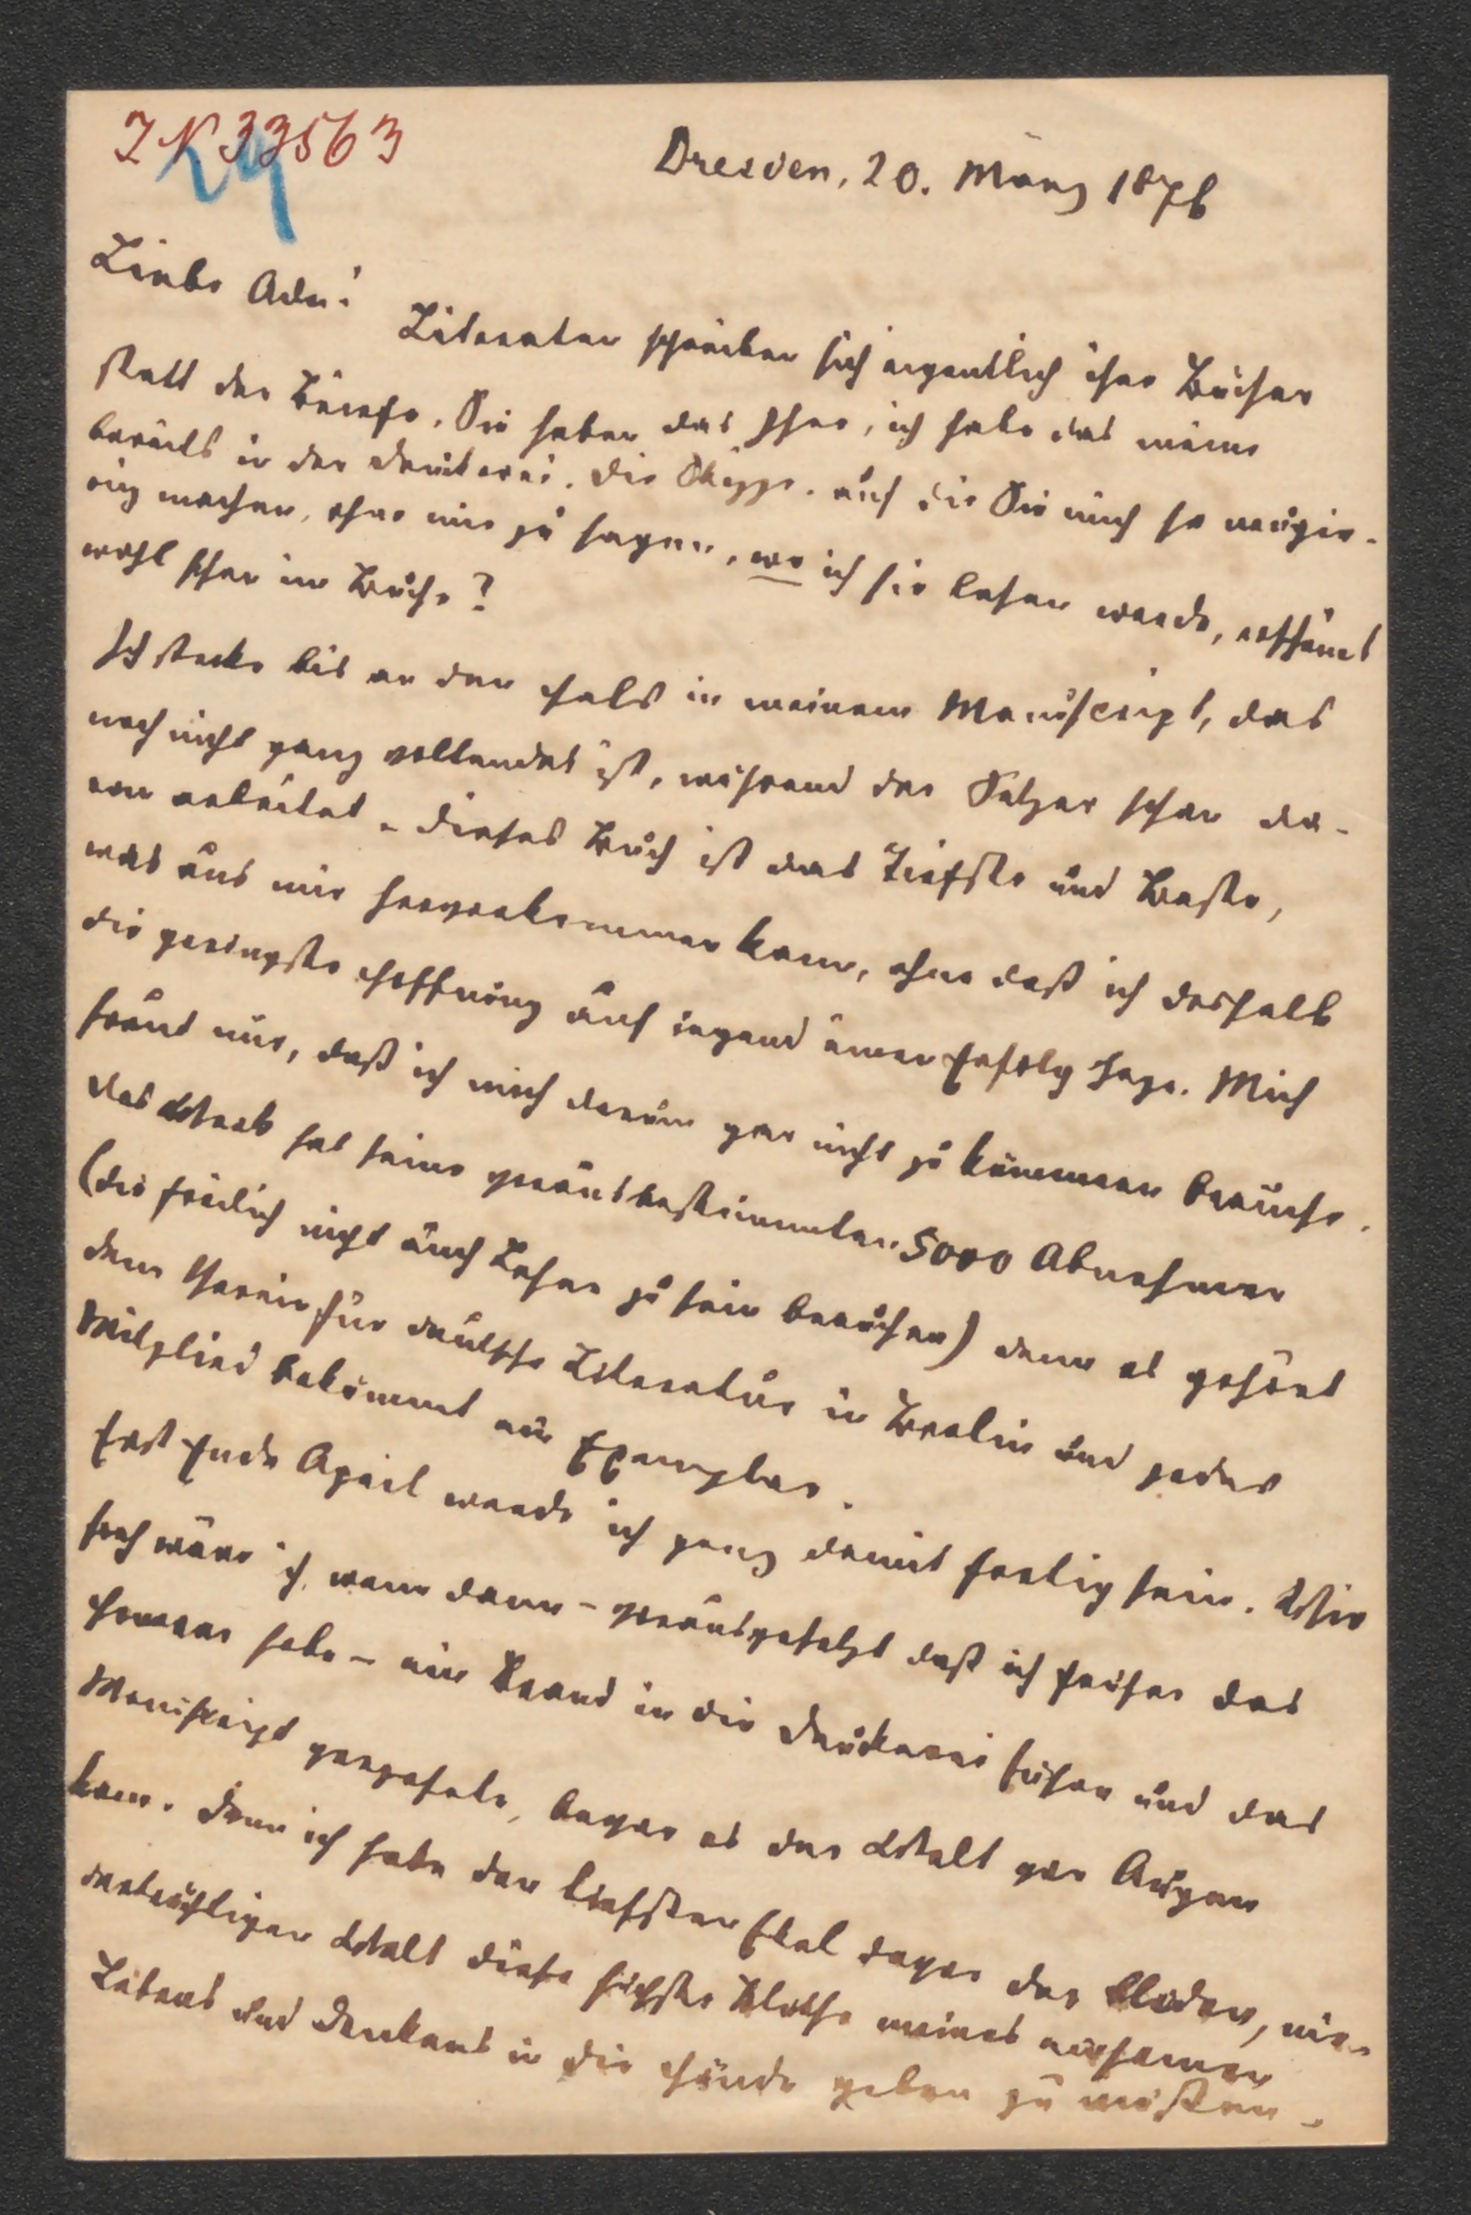 IN 33563
Dresden, 20. März 1876
Liebe Ada!
Literaten schreiben sich eigentlich ihre Bücher
statt der Briefe. Sie haben das Ihre, ich habe das meine
bereits in der Druckerei. Die Skizze, auf die Sie mich so neugie-
rig machen, ohne mir zu sagen, wo ich sie lesen werde, erscheint
wohl schon im Buche?
Ich stecke bis an den Hals in meinem Manuscript, das
noch nicht ganz vollendet ist, während der Setzer schon da-
ran arbeitet. Dieses Buch ist das Tiefste und Beste,
was aus mir hervorkommen kann, ohne daß ich deshalb
die geringste Hoffnung auf irgend einen Erfolg hege. Mich
freut nur, daß ich mich darum gar nicht zu kümmern brauche.
Das Werk hat seine vorausbestimmten 5000 Abnehmer
(die freilich nicht auch Leser zu sein brauchen) denn es gehört
dem Verein für deutsche Literatur in Berlin und jedes
Mitglied bekömmt ein Exemplar.
Erst Ende April werde ich ganz damit fertig sein. Wie
froh wäre ich, wenn dann – vorausgesetzt daß ich früher das
Honorar habe – ein Brand in die Druckerei führe und das
Manuscript verzehrte, bevor es der Welt vor Augen
kam. Denn ich habe den tiefsten Ekel davor der blöden, nie-
derträchtigen Welt diese höchste Blüthe meines einsamen
Lebens und Denkens in die Hände geben zu müssen.